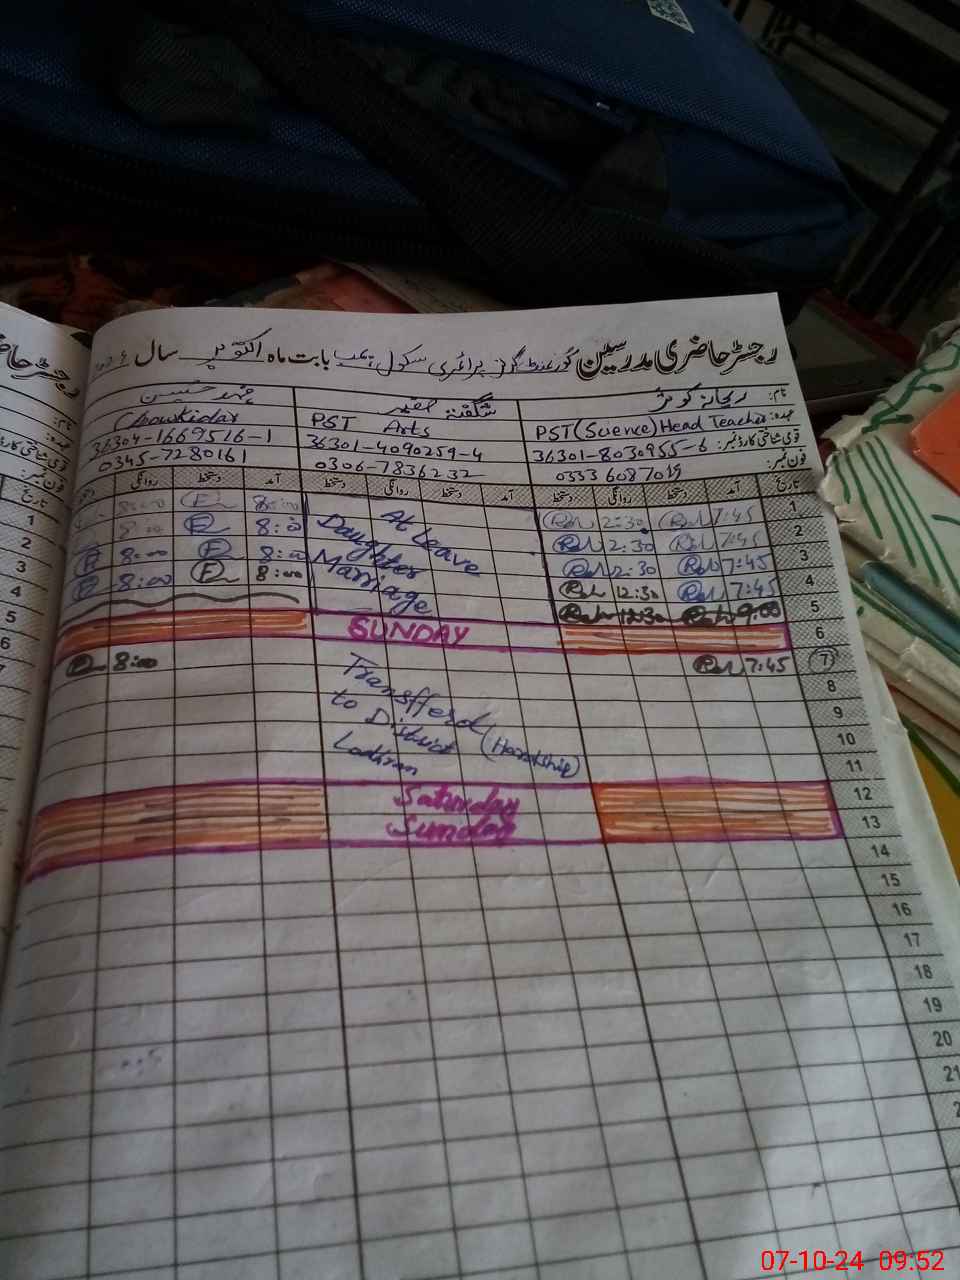 رجسٹر حاضری مدرسین گورنمنٹ گرلز پرائمری سکول بابت ماہ اکتوبر سال
نام: ریحانہ کوثر شگفتہ
عہدہ: PST (Science) Head Teacher PST Arts Chowkidar
قومی شناختی کارڈ نمبر: 36301-8030955-6 36301-4090259-4 36304-1669516-1
فون نمبر: 0333 6087019 0306-7836232 0345-7280161
تاریخ آمد دستخط روانگی دستخط آمد دستخط روانگی دستخط آمد دستخط روانگی
1 7:45 12:30 At Leave 8:00 8:00
2 7:45 12:30 Daughter 8:00 8:00
3 7:45 12:30 Marriage 8:00 8:00
4 7:45 12:30 8:00 8:00
5 9:00 12:30
6 SUNDAY
7 7:45 8:00
8 Transfferd
9 to District (Hardship)
10 Lodhran
11
12 Saturday
13 Sunday
14
15
16
17
18
19
20
21
رجسٹر
نام:
عہدہ:
قومی شناختی کارڈ نمبر:
فون نمبر:
تاریخ
1
2
3
4
5
6
7
07-10-24 09:52